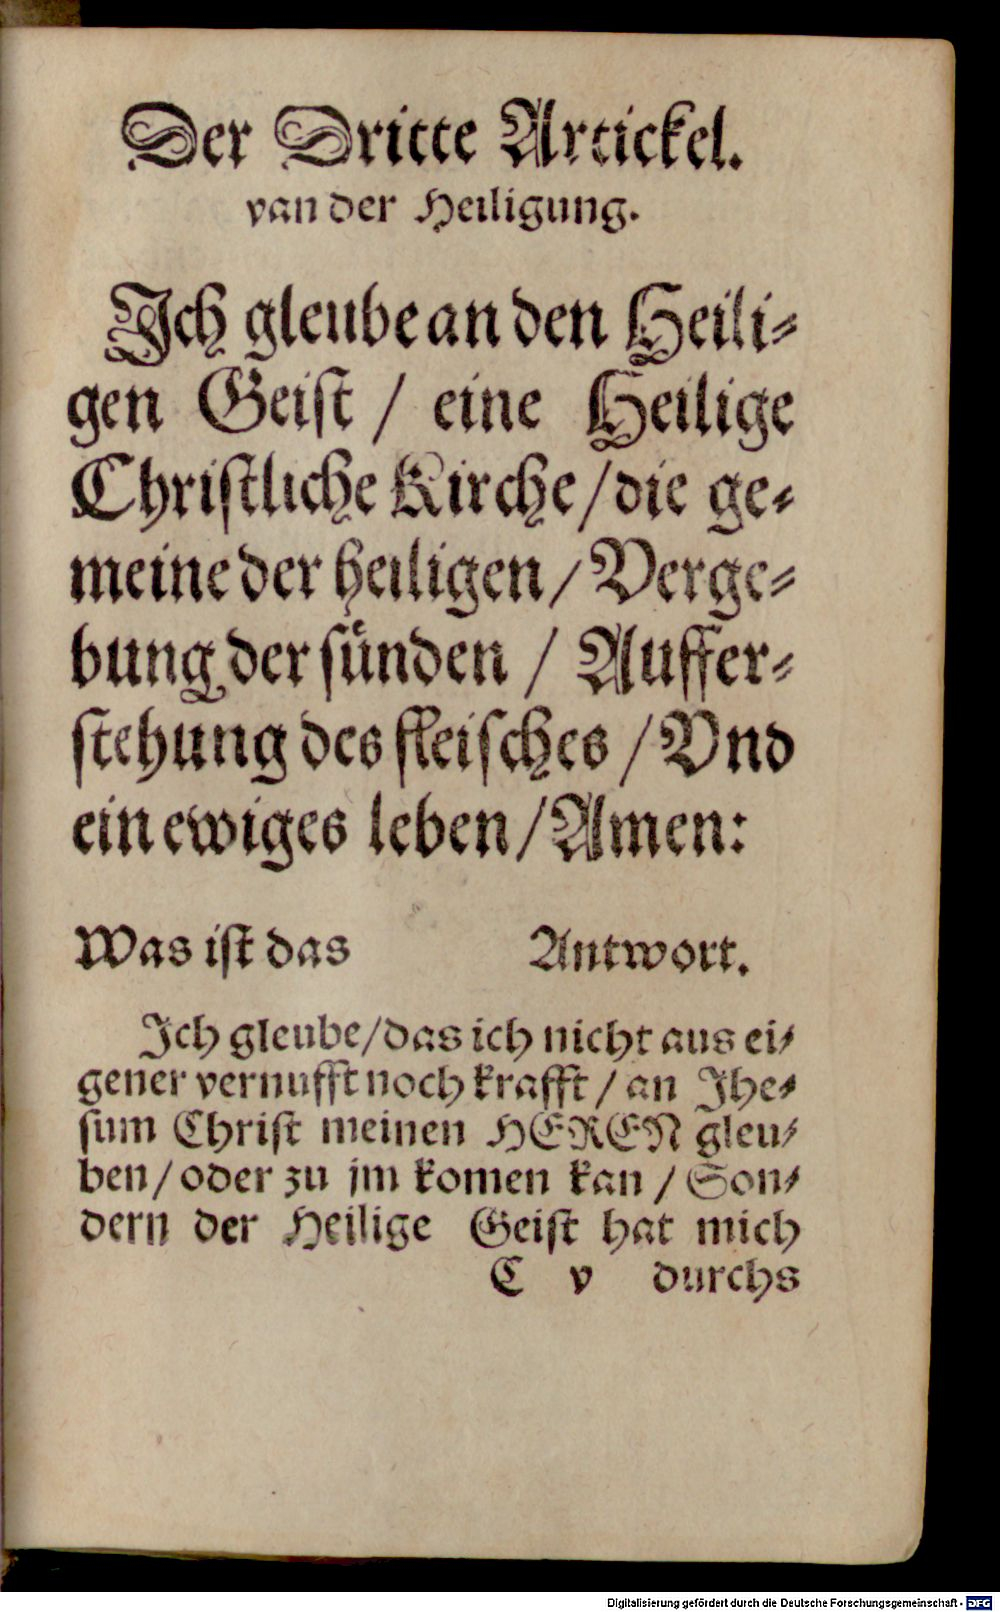 Der Dritte Artickel.
van der Heiligung.
Ich gleube an den Heili⸗
gen Geist / eine Heilige
Christliche Kirche / die ge⸗
meine der heiligen / Verge⸗
bung der suͤnden / Auffer⸗
stehung des fleisches / Vnd
ein ewiges leben / Amen:
Was ist das Antwort.
Ich gleube / das ich nicht aus ei⸗
gener vernufft noch krafft / an Jhe⸗
sum Christ meinen HEREN gleu⸗
ben / oder zu jm komen kan / Son⸗
dern der Heilige Geist hat mich
C v durchs
Digitalisierung gefördert durch die Deutsche Forschungsgemeinschaft - DFG